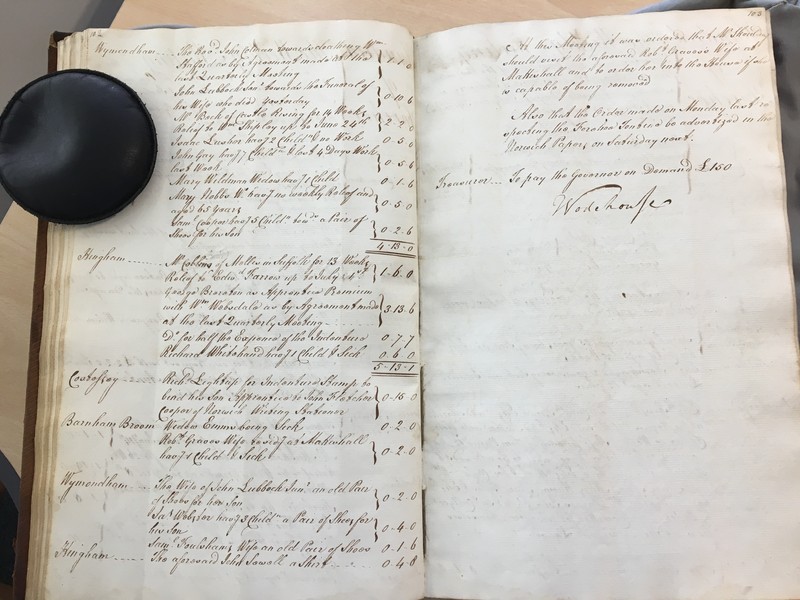 Wymondham The Revd. John Colman towards cloathing Wm
Stafford as by Agreement made at the
last Quarterly Meeting 1-1-0
John Lubbock Senr. towards the Funeral of
his Wife who died Yesterday 0-10-6
Mr Beck of Castle Rising for 14 Weeks
Relief to Wm Shipley up to June 24th 2-2-0
Isaac having 2 Childn. & no Work 0-5-0
John Gay having Childn. & lost 4 Days Work
last Week 0-5-6
Mary Wildman Widow having 1 Child 0-1-6
Mary Hobbs Wo. having no weekly Relief and
aged 65 Years 0-5-0
Saml. Cooper having 5 Childn. a Pair of
Shoes for his Son 0-2-6
4-13-0
Hingham Mr of Mellis in Suffolk for 13 Weeks
Relief to Edwd. Farrow up to July 1-6-0
George as Apprentice Premium
with Wm as by Agreement made
at the last Quarterly Meeting 3-13-6
Do. for half the Expence of the Indenture 0-7-7
Richard Whitehand having 1 Child & Sick 0-6-0
5-13-1
Costessey Richd. for Indenture Stamp to
bind his Son Apprentice to John Fletcher
Cooper of Norwich Stationer 0-15-0
Barnham Broom Widow Emms being Sick 0-2-0
Robt. Graves Wife residg at Makishall
having 1 Child & Sick 0-2-0
Wymondham The Wife of John Lubbock Junr. an old Pair
of Shoes for her Son 0-2-0
Jas. Webster having 3 Childn. a Pair of Shoes for
his Son 0-4-0
Saml. Foulsham's Wife an old Pair of Shoes 0-1-6
Hingham The aforesaid John Sewell a Shirt 0-4-8
103
At this Meeting it was ordered that Mr
should visit the aforesaid Robt. Graves's Wife at
Makishall and to order her into the House if she
is capable of being removed
Also that the Order made on Monday last re
specting the be advertized in the
Norwich Papers on Saturday next.
Treasurer To pay the Governor on Demand £150
Wodehouse